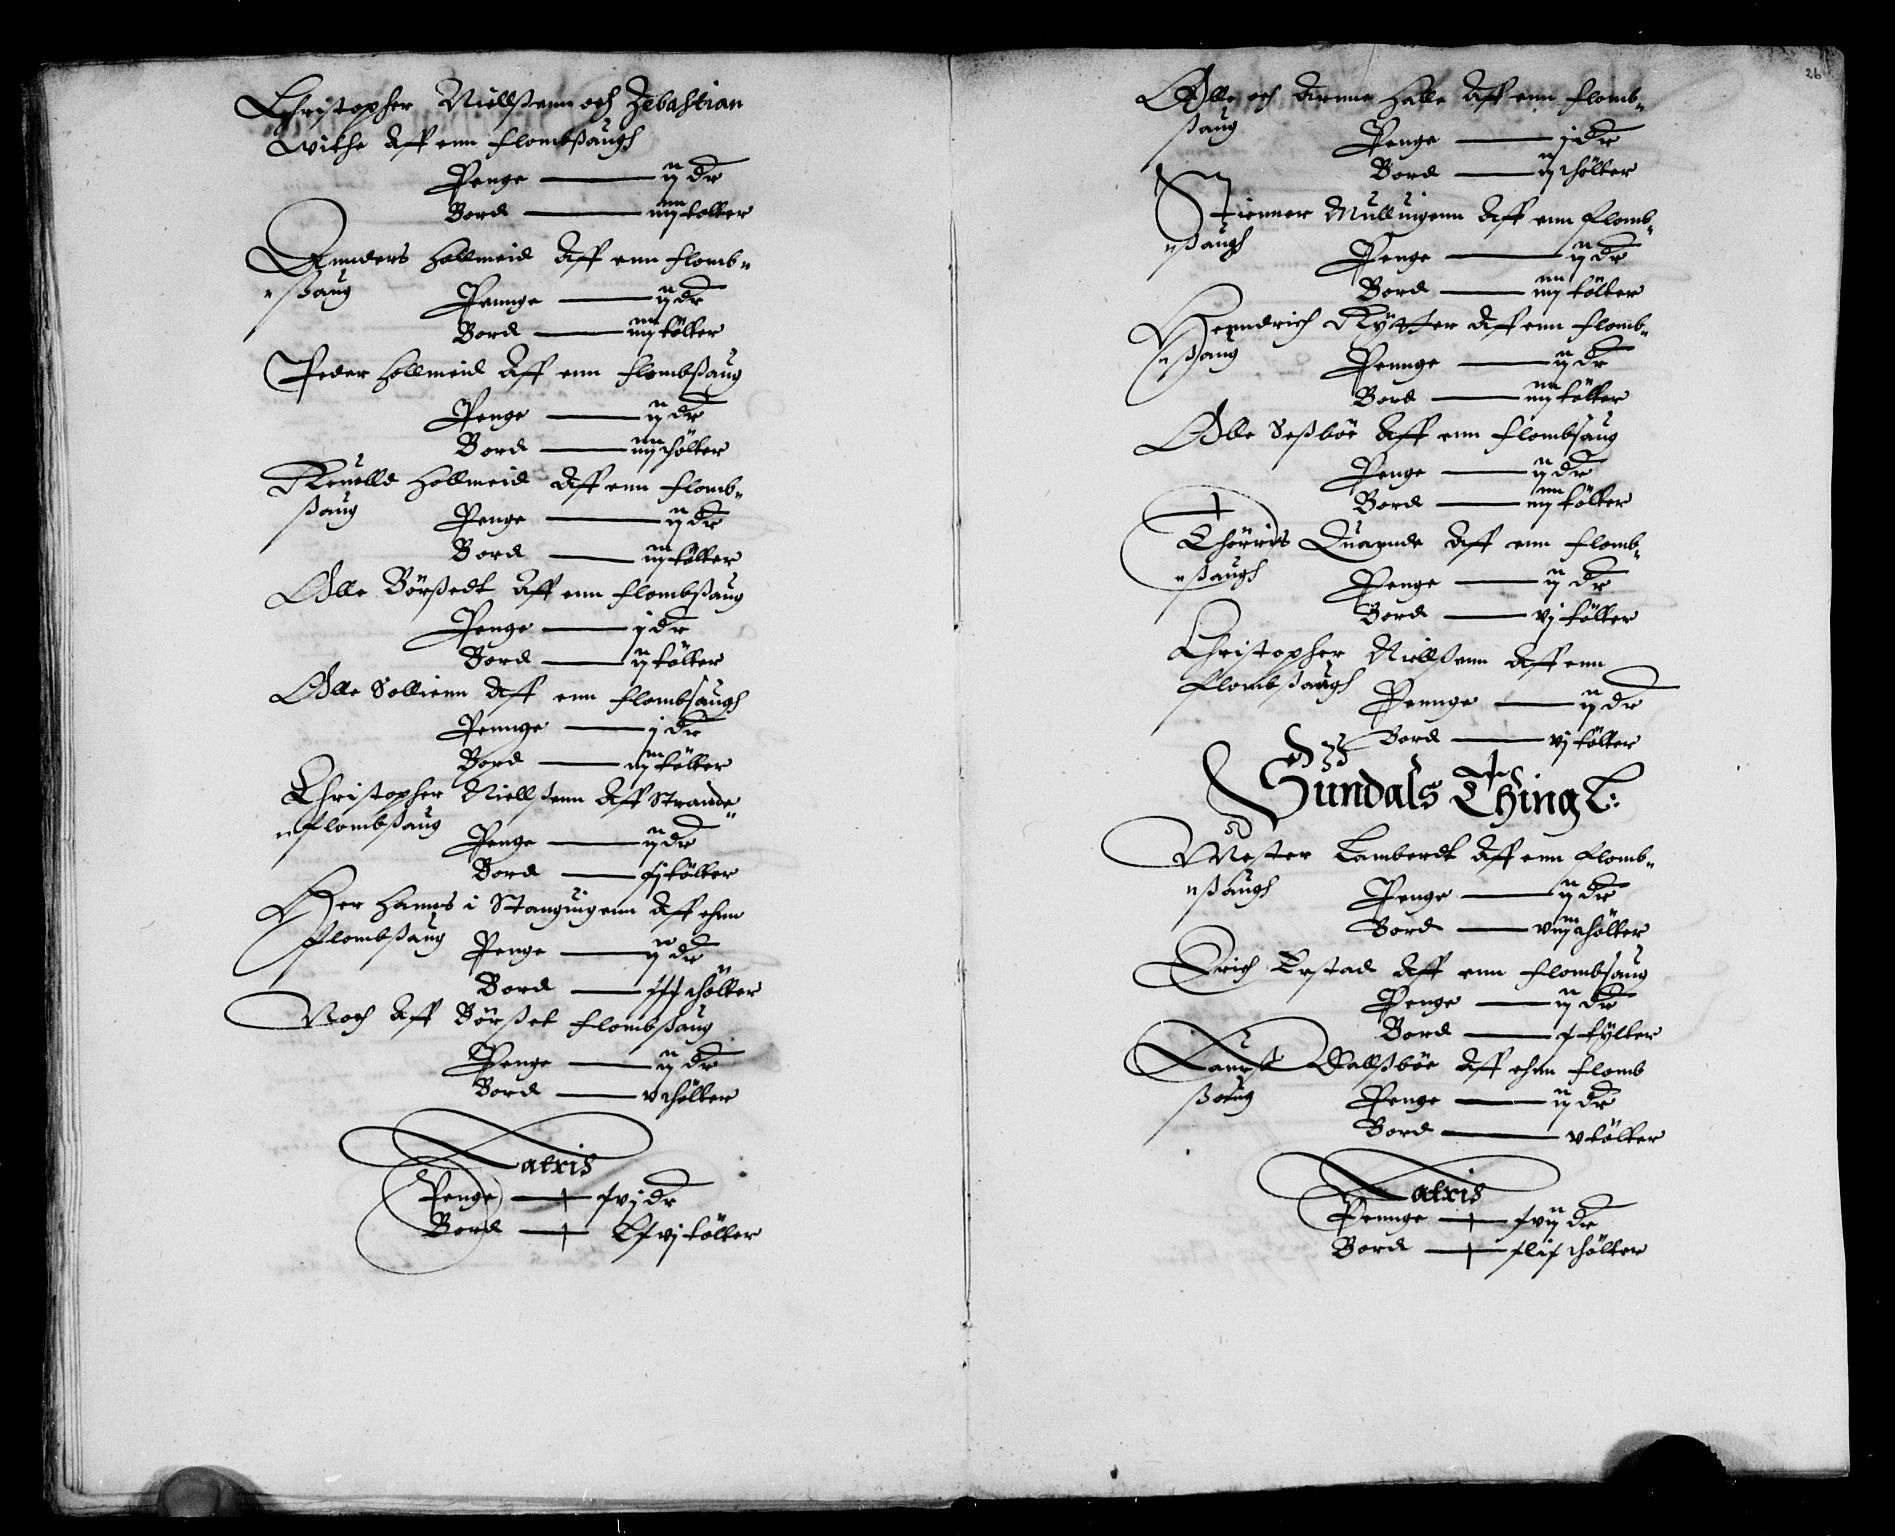 Christopher Niellßenn och Zebastian
withe Aff enn flombßaugh
Penge — ij dr
Bord — iiij tolter
Annders Hollmeid Aff enn flomb-
ßaug
Pennge — ij dr
Bord — iiij tölter
Peder Hollmeid Aff enn flombßaug
Penge — ij dr
Bord — iiij thölter
Hollmeid Aff enn flomb-
ßaug
Penge — ij dr
Bord — iiij tölter
Olle Börßedt Aff enn flombßaug
Penge — j dr
Bord — ij tölter
Olle Sollienn Aff enn flombsaugh
Pennge — j dr
Bord — iij tölter
Christopher Niellßenn Aff Strande
flombßaug
Penge — ij dr
Bord — xj tölter
Her Hanns i Stanguigenn Aff ehnn
flombßaug
Penge — ij dr
Bord — xxx thölter
Noch Aff Börßet flombßaug
Penge — ij dr
Bord — v thölter
Latris
Penge — xvj dr
Bord — Lxvj tölter
26
Olle och Arnne Halle Aff enn flomb-
ßaug
Penge — j dr
Bord — ij thölter
Mullnigenn Aff enn flomb-
ßaugh
Penge — ij dr
Bord — iiij tölter
Heyndrich Rytter Aff enn flomb-
ßaug
Pennge — ij dr
Bord — iiij tölter
Olle Seßböe Aff enn flombsaug
Penge — ij dr
Bord — iiij tölter
Thörris Quaynde Aff enn flomb-
ßaugh
Penge — ij dr
Bord — vj tölter
Christopher Niellßenn Aff enn
flombßaugh
Pennge — ij dr
Bord — vj tölter
Sundals Thing L:
Mester Lamberdt Aff enn flomb-
ßaugh
Penge — ij dr
Bord — viij thölter
Erich Erstad Aff enn flombsaug
Penge — ij dr
Bord — x tylter
Laurß Dallßböe Aff ehnn flomb
ßaug
Penge — ij dr
Bord — v tölter
Latris
Pennge — xvij dr
Bord — xlix thölter